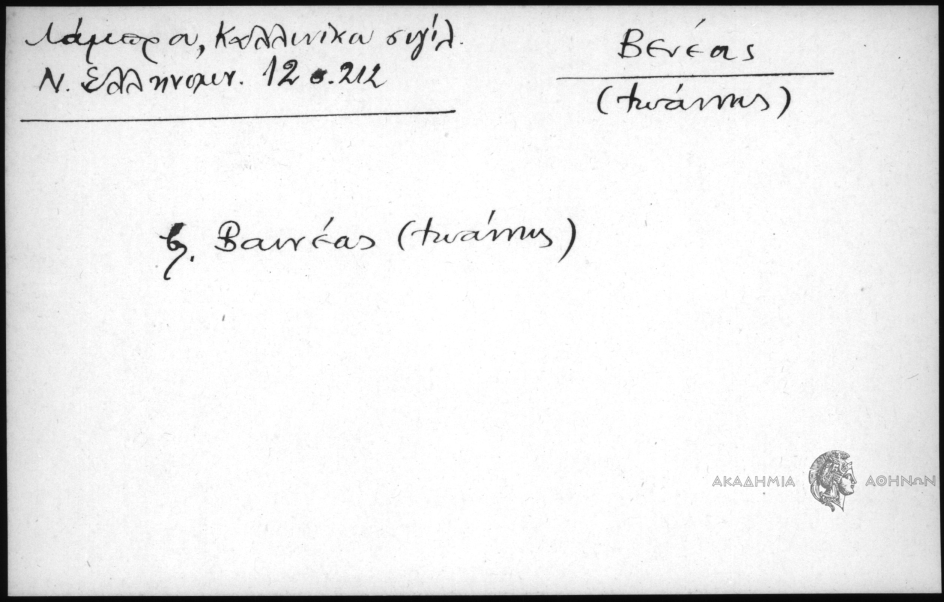 Λάμπρου, Καλλινίκου σιγίλ.
Ν. Ελληνομν. 12 σ. 212
Βενέας
(Ιωάννης)
β. Βαινέας (Ιωάννης)
ΑΚΑΔΗΜΙΑ ΑΘΗΝΩΝ